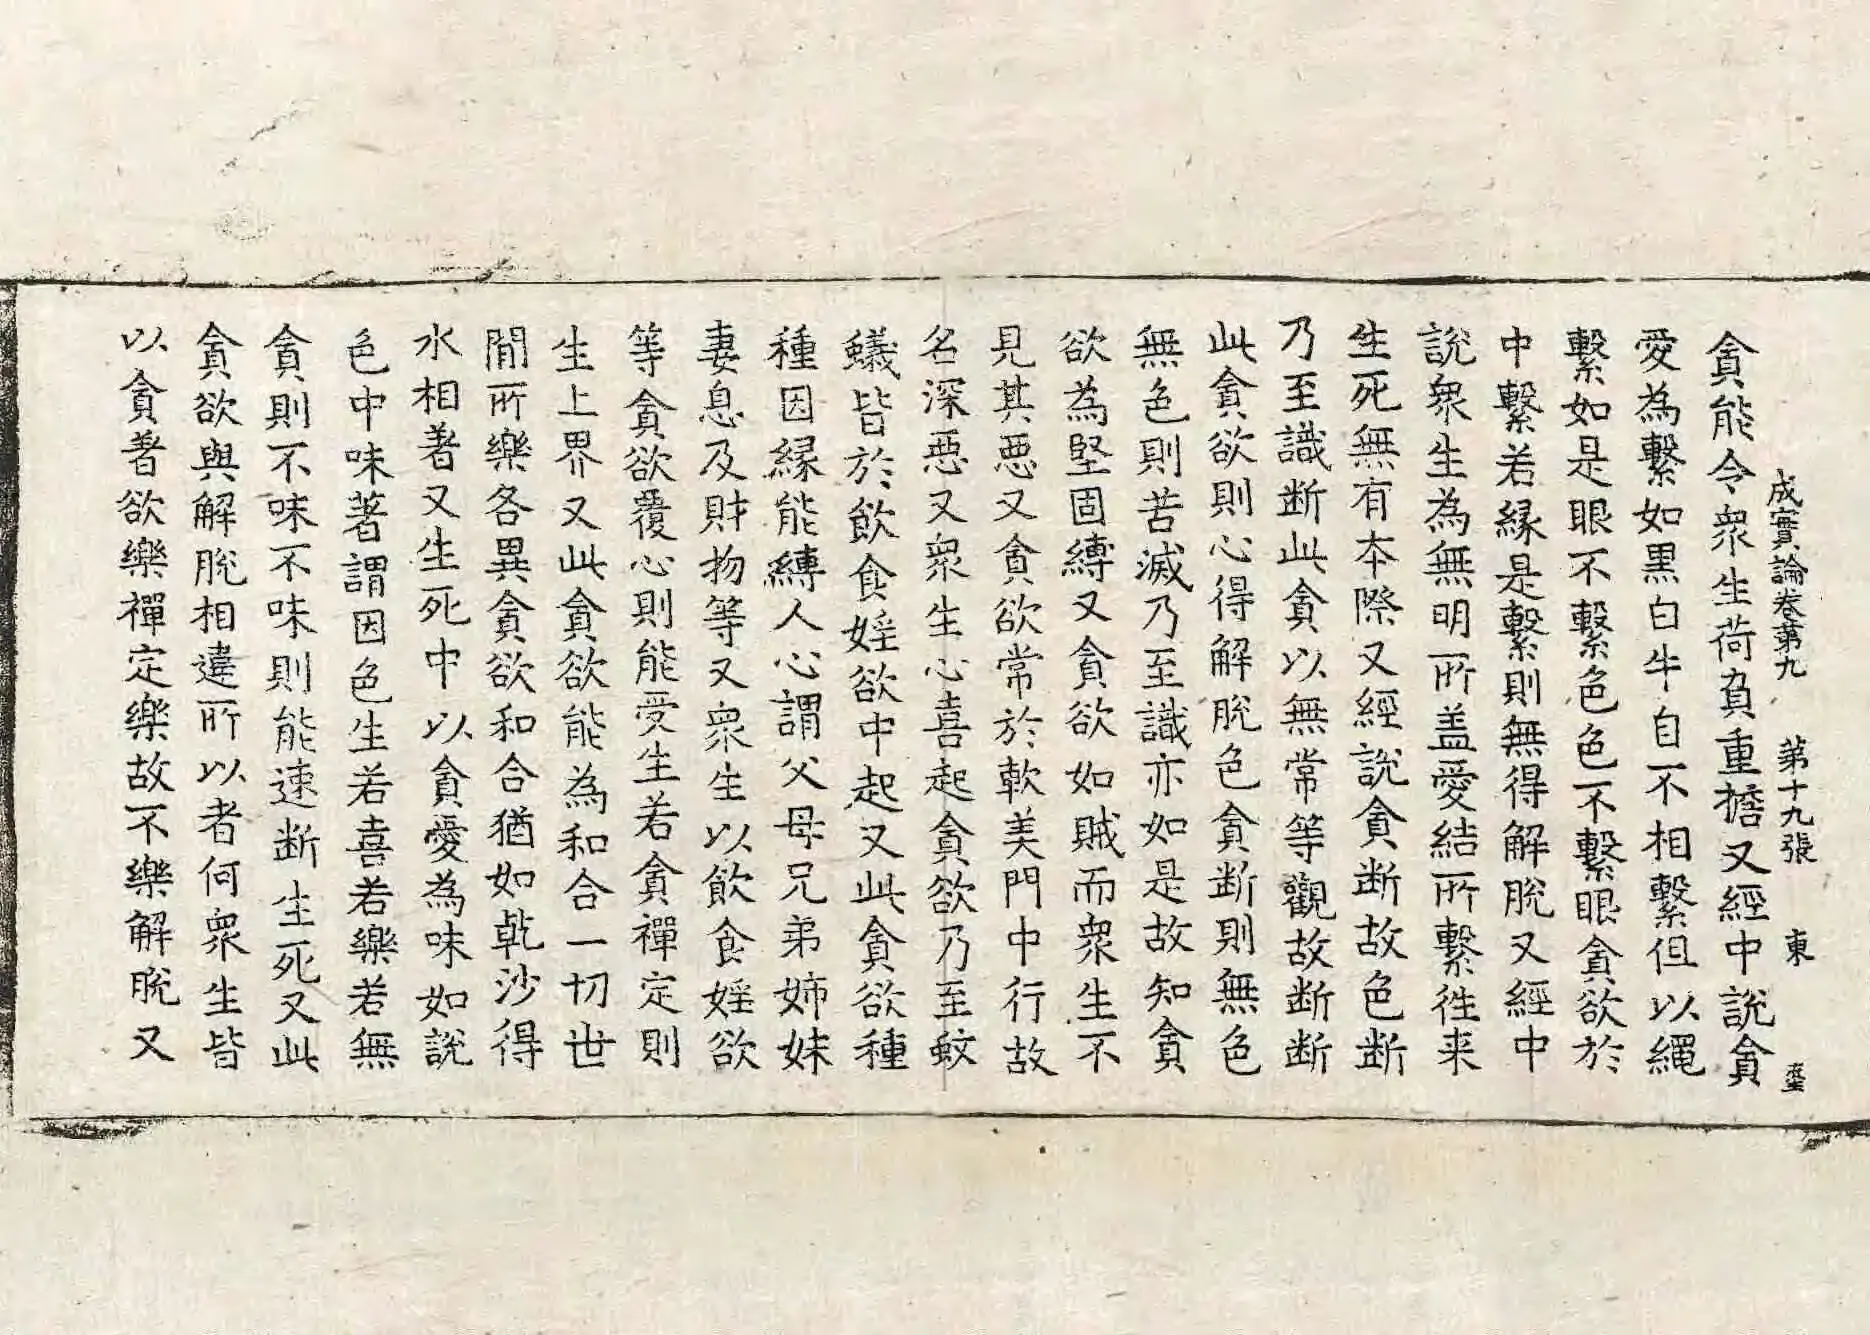 成實論卷第九 第十九張 東
貪能令衆生荷負重擔又經中說貪
愛為繫如黒白牛自不相繫但以繩
繫如是眼不繫色色不繫眼貪欲於
中繫若縁是繫則無得解脫又經中
說衆生為無明所盖愛結所繫徃来
生死無有本際又經說貪断故色断
乃至識断此貪以無常等觀故断断
此貪欲則心得解脫色貪断則無色
無色則苦滅乃至識亦如是故知貪
欲為堅固縛又貪欲如賊而衆生不
見其惡又貪欲常於軟美門中行故
名深惡又衆生心喜起貪欲乃至蚊
蟻皆於飲食婬欲中起又此貪欲種
種因縁能縛人心謂父母兄弟姉妹
妻息及財物等又衆生以飲食婬欲
等貪欲覆心則能受生若貪禪定則
生上界又此貪欲能為和合一切世
間所樂各異貪欲和合猶如乹沙得
水相著又生死中以貪愛為味如說
色中味著謂因色生若喜若樂若無
貪則不味不味則能速断生死又此
貪欲與解脫相違所以者何衆生皆
以貪著欲樂禪定樂故不樂解脫又